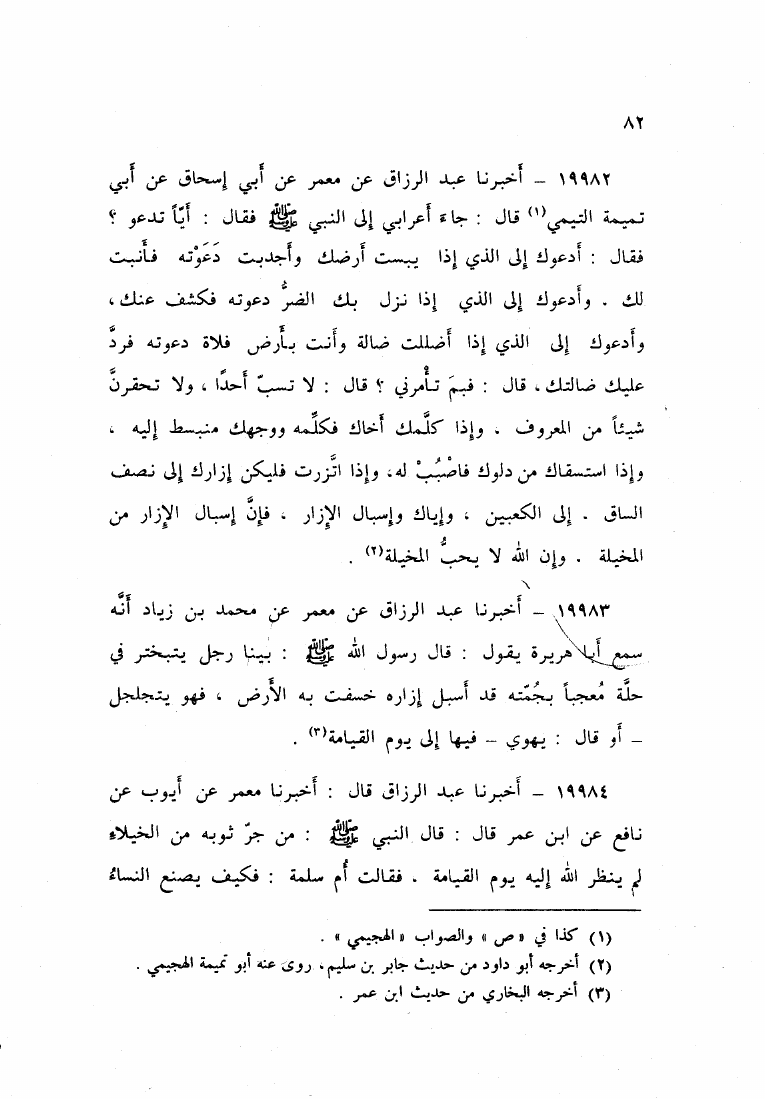 ٨٢
١٩٩٨٢ – أخبرنا عبد الرزاق عن معمر عن أبي إسحاق عن أبي
تميمة التيمي(١) قال : جاءَ أعرابي إلى النبي ﷺ فقال : أيّاً تدعو ؟
فقال : أدعوك إلى الذي إذا يبست أرضك وأجدبت دَعَوْته فأنبت
لك . وأدعوك إلى الذي إذا نزل بك الضرُّ دعوته فكشف عنك ،
وأدعوك إلى الذي إذا أضللت ضالة وأنت بأرض فلاة دعوته فردَّ
عليك ضالتك ، قال : فبمَ تأْمرني ؟ قال : لا تسبّ أحدًا ، ولا تحقرنّ
شيئاً من المعروف ، وإذا كلَّمك أخاك فكلِّمه ووجهك منبسط إليه ،
وإذا استسقاك من دلوك فاصْبُبْ له، وإذا اتَّزرت فليكن إزارك إلى نصف
الساق . إلى الكعبين ، وإياك وإسبال الإزار ، فإنَّ إسبال الإزار من
المخيلة . وإن الله لا يحبُّ المخيلة(٢) .
١٩٩٨٣ – أخبرنا عبد الرزاق عن معمر عن محمد بن زياد أنَّه
سمع أبا هريرة يقول : قال رسول الله ﷺ : بينا رجل يتبختر في
حلّة مُعجباً بجُمّته قد أسبل إزاره خسفت به الأرض ، فهو يتجلجل
– أو قال : يهوي – فيها إلى يوم القيامة(٣) .
١٩٩٨٤ – أخبرنا عبد الرزاق قال : أخبرنا معمر عن أيوب عن
نافع عن ابن عمر قال : قال النبي ﷺ : من جرّ ثوبه من الخيلاءِ
لم ينظر الله إليه يوم القيامة . فقالت أُم سلمة : فكيف يصنع النساءُ
(١) كذا في « ص » والصواب « الهجيمي » .
(٢) أخرجه أبو داود من حديث جابر بن سليم، روى عنه أبو تميمة الهجيمي .
(٣) أخرجه البخاري من حديث ابن عمر .